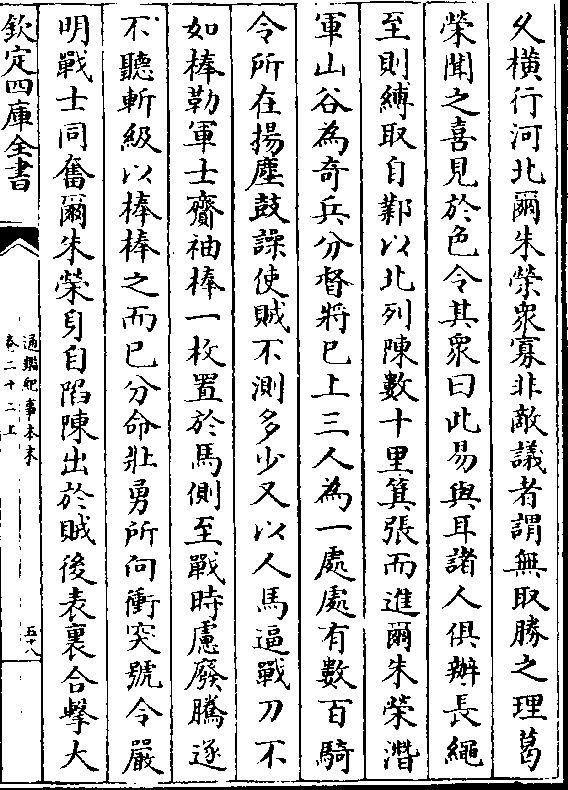 久橫行河北爾朱榮衆寡非敵議者謂無取勝之理葛
榮聞之喜見於色令其衆曰此易與耳諸人俱辦長繩
至則縛取自鄴以北列陳數十里箕張而進爾朱榮潛
軍山谷為奇兵分督將已上三人為一處處有數百騎
令所在揚塵鼓譟使賊不測多少又以人馬逼戰刀不
如棒勒軍士齎袖棒一枚置於馬側至戰時慮廢騰逐
不聽斬級以棒棒之而已分命壯勇所向衝突號令嚴
明戰士同奮爾朱榮身自陷陳出於賊後表裏合擊大
欽定四庫全書
通鑑紀事本末
卷二十二上
五十八